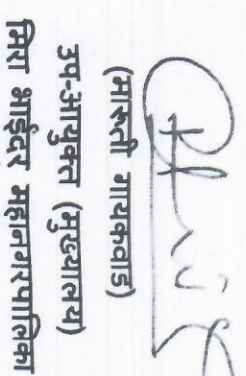 (मारूती गायकवाड)
उप-आयुक्त (मुख्यालय)
मिरा भाईंदर महानगरपालिका